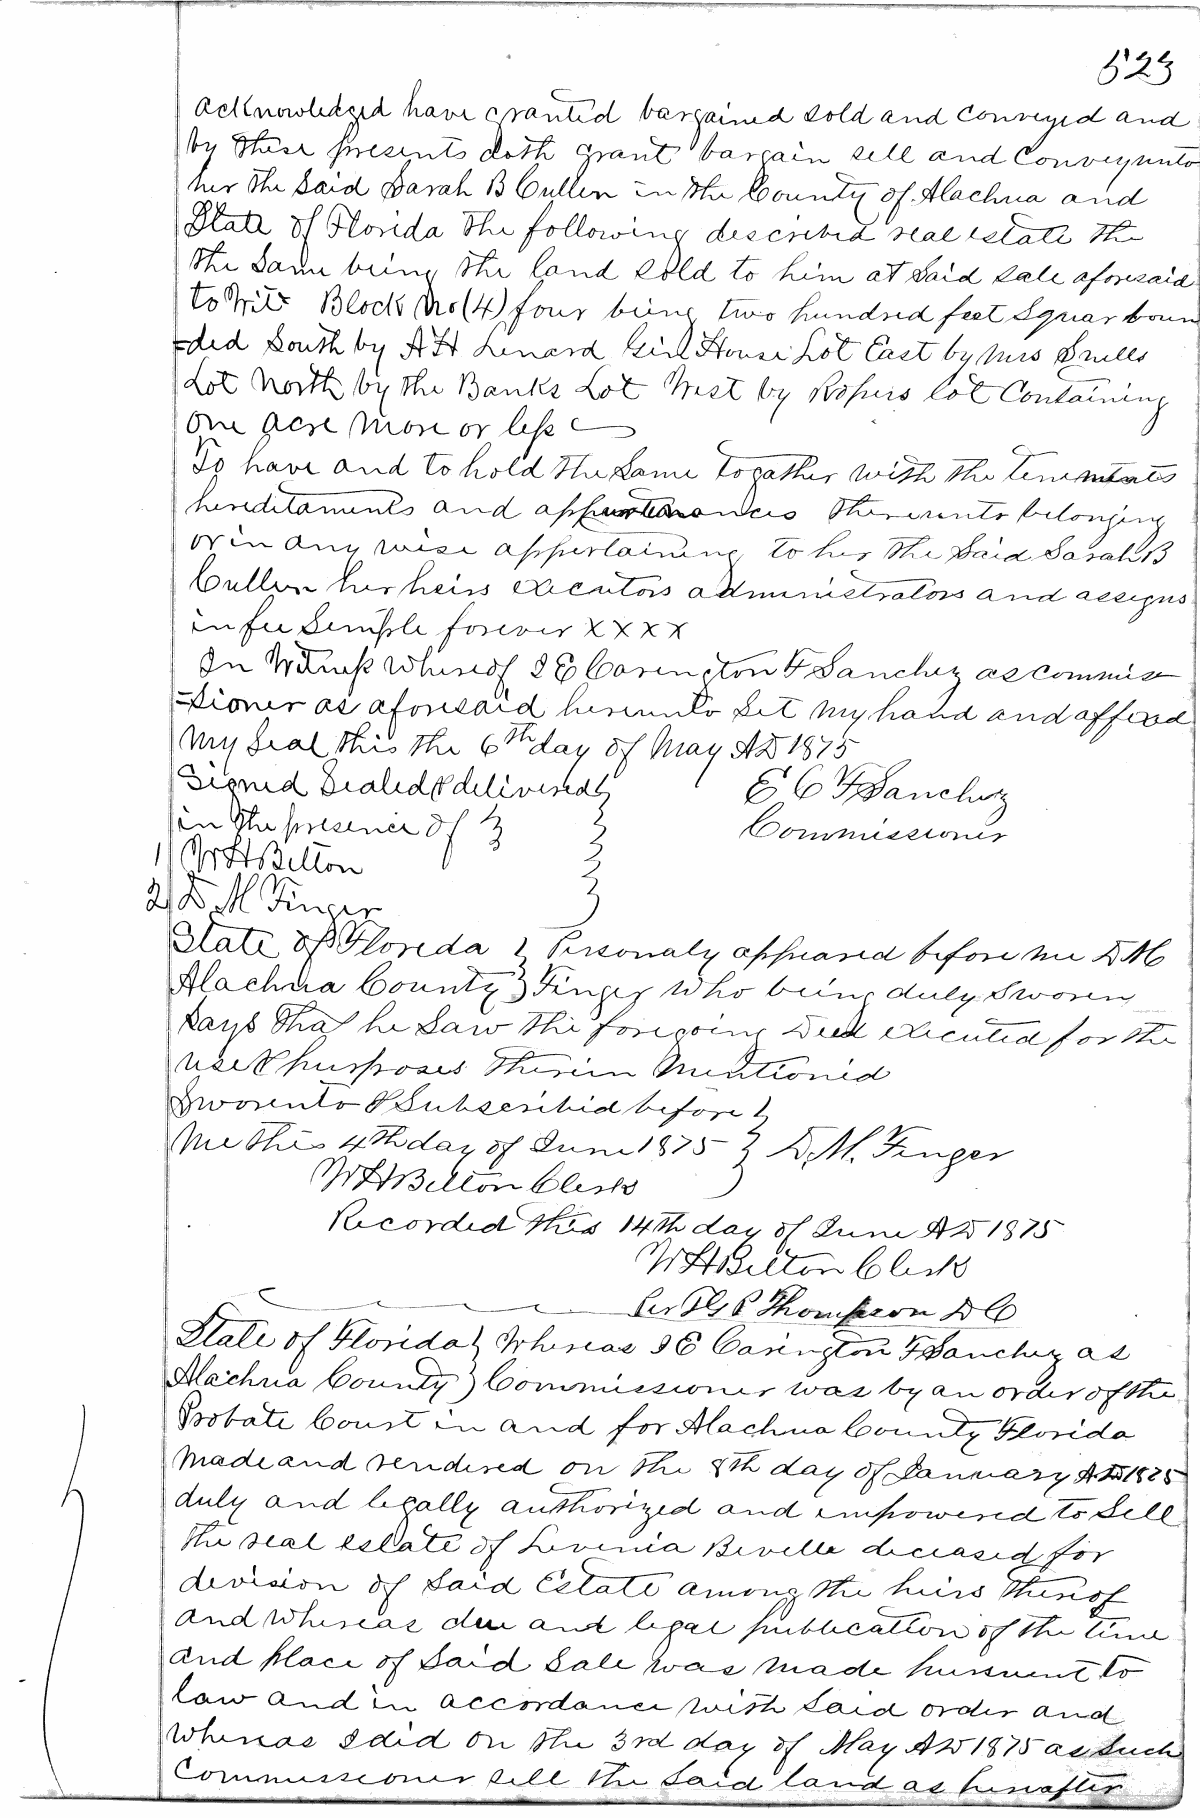 523
acknowledged have granted bargained sold and conveyed and
by these presents doth grant bargain sell and convey unto
her the Said Sarah B Cullen in the County of Alachua and
State of Florida the following described real estate the
the Same being the land sold to him at Said sale aforesaid
to Wit Block No (4) four being two hundred feet Squar boun
=ded South by A H Lenard Gin House Lot East by Mrs Snells
Lot North by the Banks Lot West by Ropers lot Containing
one acre more or less
To have and to hold the Same togather with the tenements
hereditaments and appurtenances thereunto belonging
or in any wise appertaining to her the Said Sarah B
Cullen her heirs executors administrators and assigns
in fee Semple forever x x x x
In Witness Whereof I E Carington F Sanchez as commis
=sioner as aforesaid hereunto Set my hand and affixed
My Seal this the 6th day of May AD 1875
Signed Sealed & delivered
E C F Sanchez
in the presence of
Commissioner
1 W H Belton
2 D M Finger
State of Floreda } Personaly appeared before me D M
Alachua County } Finger Who being duly Sworen
Says that he Saw the foregoing Deed executed for the
use & purposes therein Mentioned
Sworento & Subscribid before
me this 4th day of June 1875 } D, M. Finger
W H Belton Clerk
Recorded this 14th day of June AD 1875
W H Belton Clerk
Per P Thompson D C
State of Florida } Whereas I E Carington F Sanchez as
Alachua County } Commissioner was by an order of the
Probate Court in and for Alachua County Florida
Made and rendered on the 8th day of January AD 1875
duly and legally authorized and empowered to Sell
the real estate of Levenia Beville deceased for
devision of Said Estate among the heirs thereof
and Whereas due and legal publication of the time
and place of Said Sale was made pursuent to
law and in accordance with Said order and
Whereas I did on the 3rd day of May AD 1875 as Such
Commissioner sell the Said land as herinafter